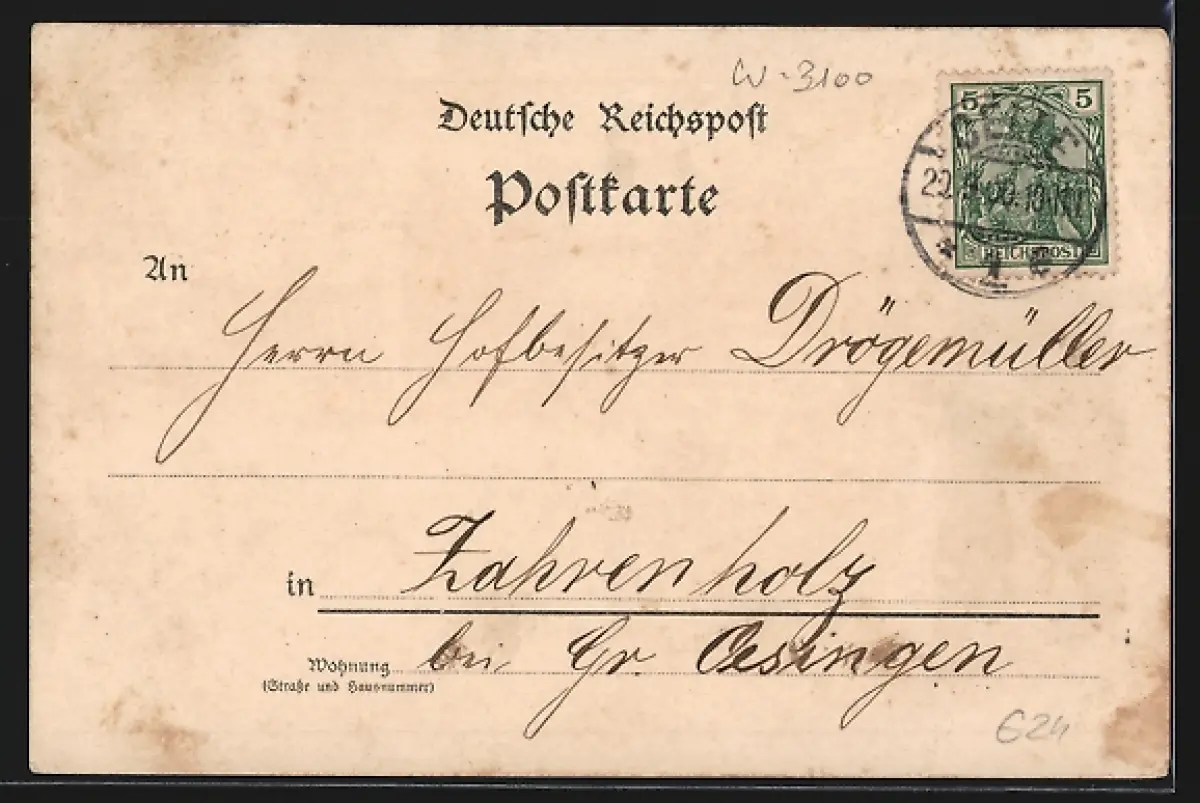 W - 3100
Deutsche Reichspost
Postkarte
5 5
CELLE
REICHSPOST
1 c
An
Herrn Hofbesitzer Drögemüller
in Zahrenholz
Wohnung bei Gr. Oesingen
(Straße und Hausnummer)
624